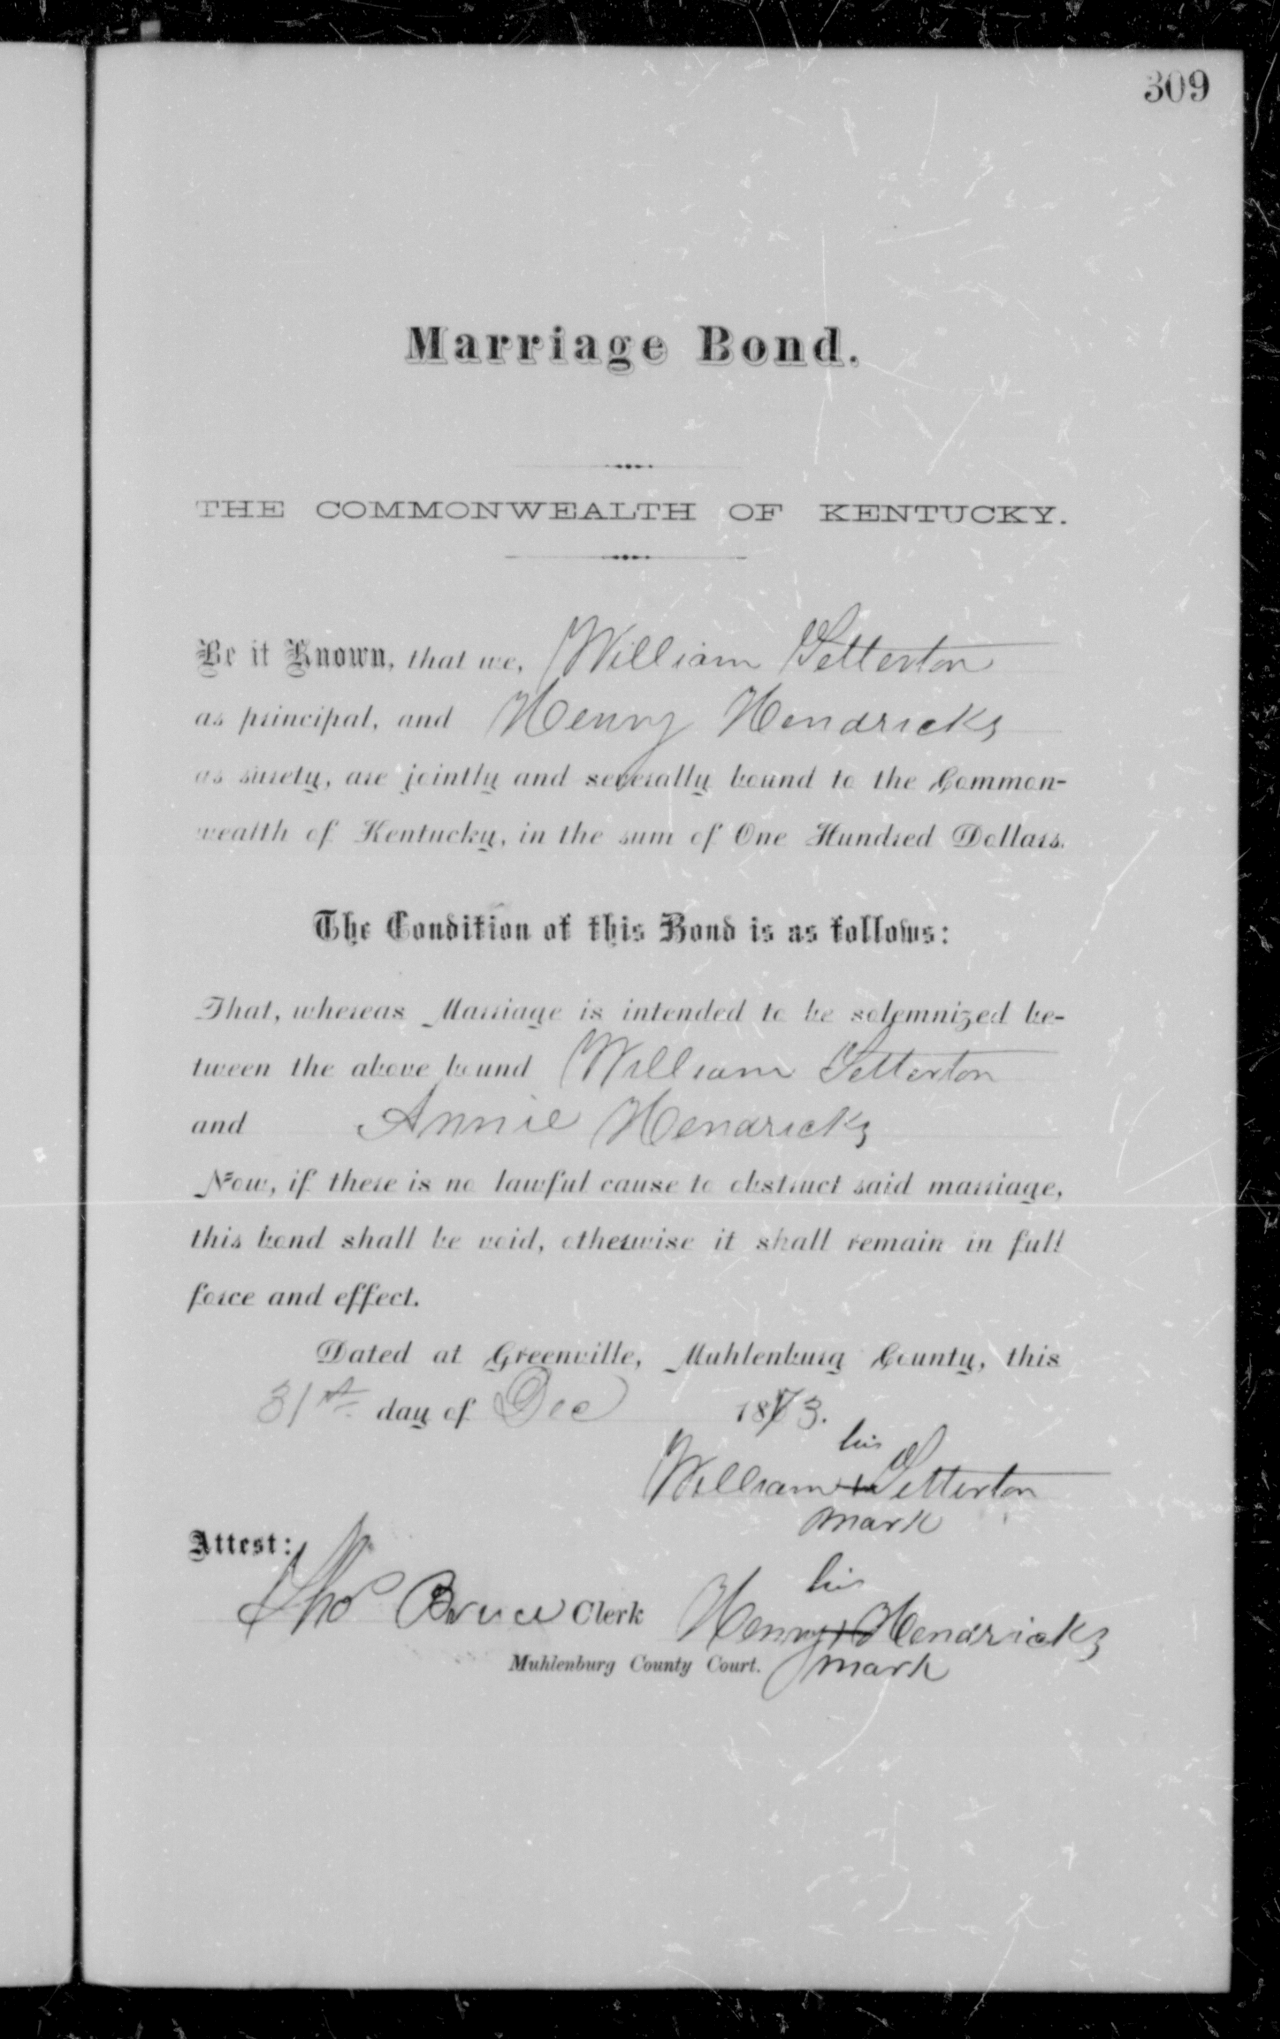 309
Marriage Bond.
THE COMMONWEALTH OF KENTUCKY.
Be it Known, that we, William Tetterton
as principal, and Henry Hendricks
as surety, are jointly and severally bound to the Common-
wealth of Kentucky, in the sum of One Hundred Dollars.
The Condition of this Bond is as follows:
That, whereas Marriage is intended to be solemnized be-
tween the above bound William Tetterton
and Annie Hendricks
Now, if there is no lawful cause to obstruct said marriage,
this bond shall be void, otherwise it shall remain in full
force and effect.
Dated at Greenville, Muhlenburg County, this
31st day of Dec 1873.
his
William + Tetterton
mark
Attest:
his
Tho Bruce Clerk Henry + Hendricks
Muhlenburg County Court. mark